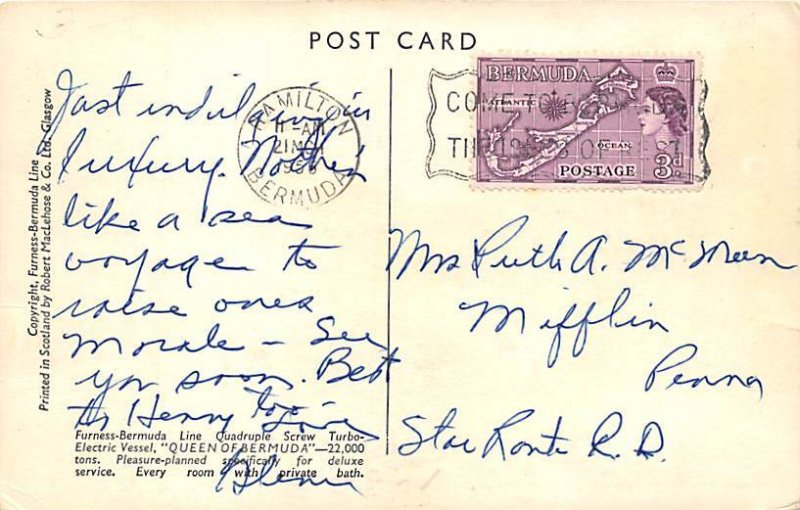 POST CARD
Just indulging in
luxury. Nothing
like a sea
voyage to
raise ones
morale – See
you soon. Best
to Henry too
Love
HAMILTON
11-AM
21 M
195
BERMUDA
COME TO
THE OF REST
BERMUDA
ATLANTIC
OCEAN
3d.
POSTAGE
Mrs Ruth A. McMeen
Mifflin
Penna
Star Route R.D.
Furness-Bermuda Line Quadruple Screw Turbo-
Electric Vessel, "QUEEN OF BERMUDA"—22,000
tons. Pleasure-planned specifically for deluxe
service. Every room with private bath.
Copyright, Furness-Bermuda Line
Printed in Scotland by Robert MacLehose & Co. Ltd. Glasgow